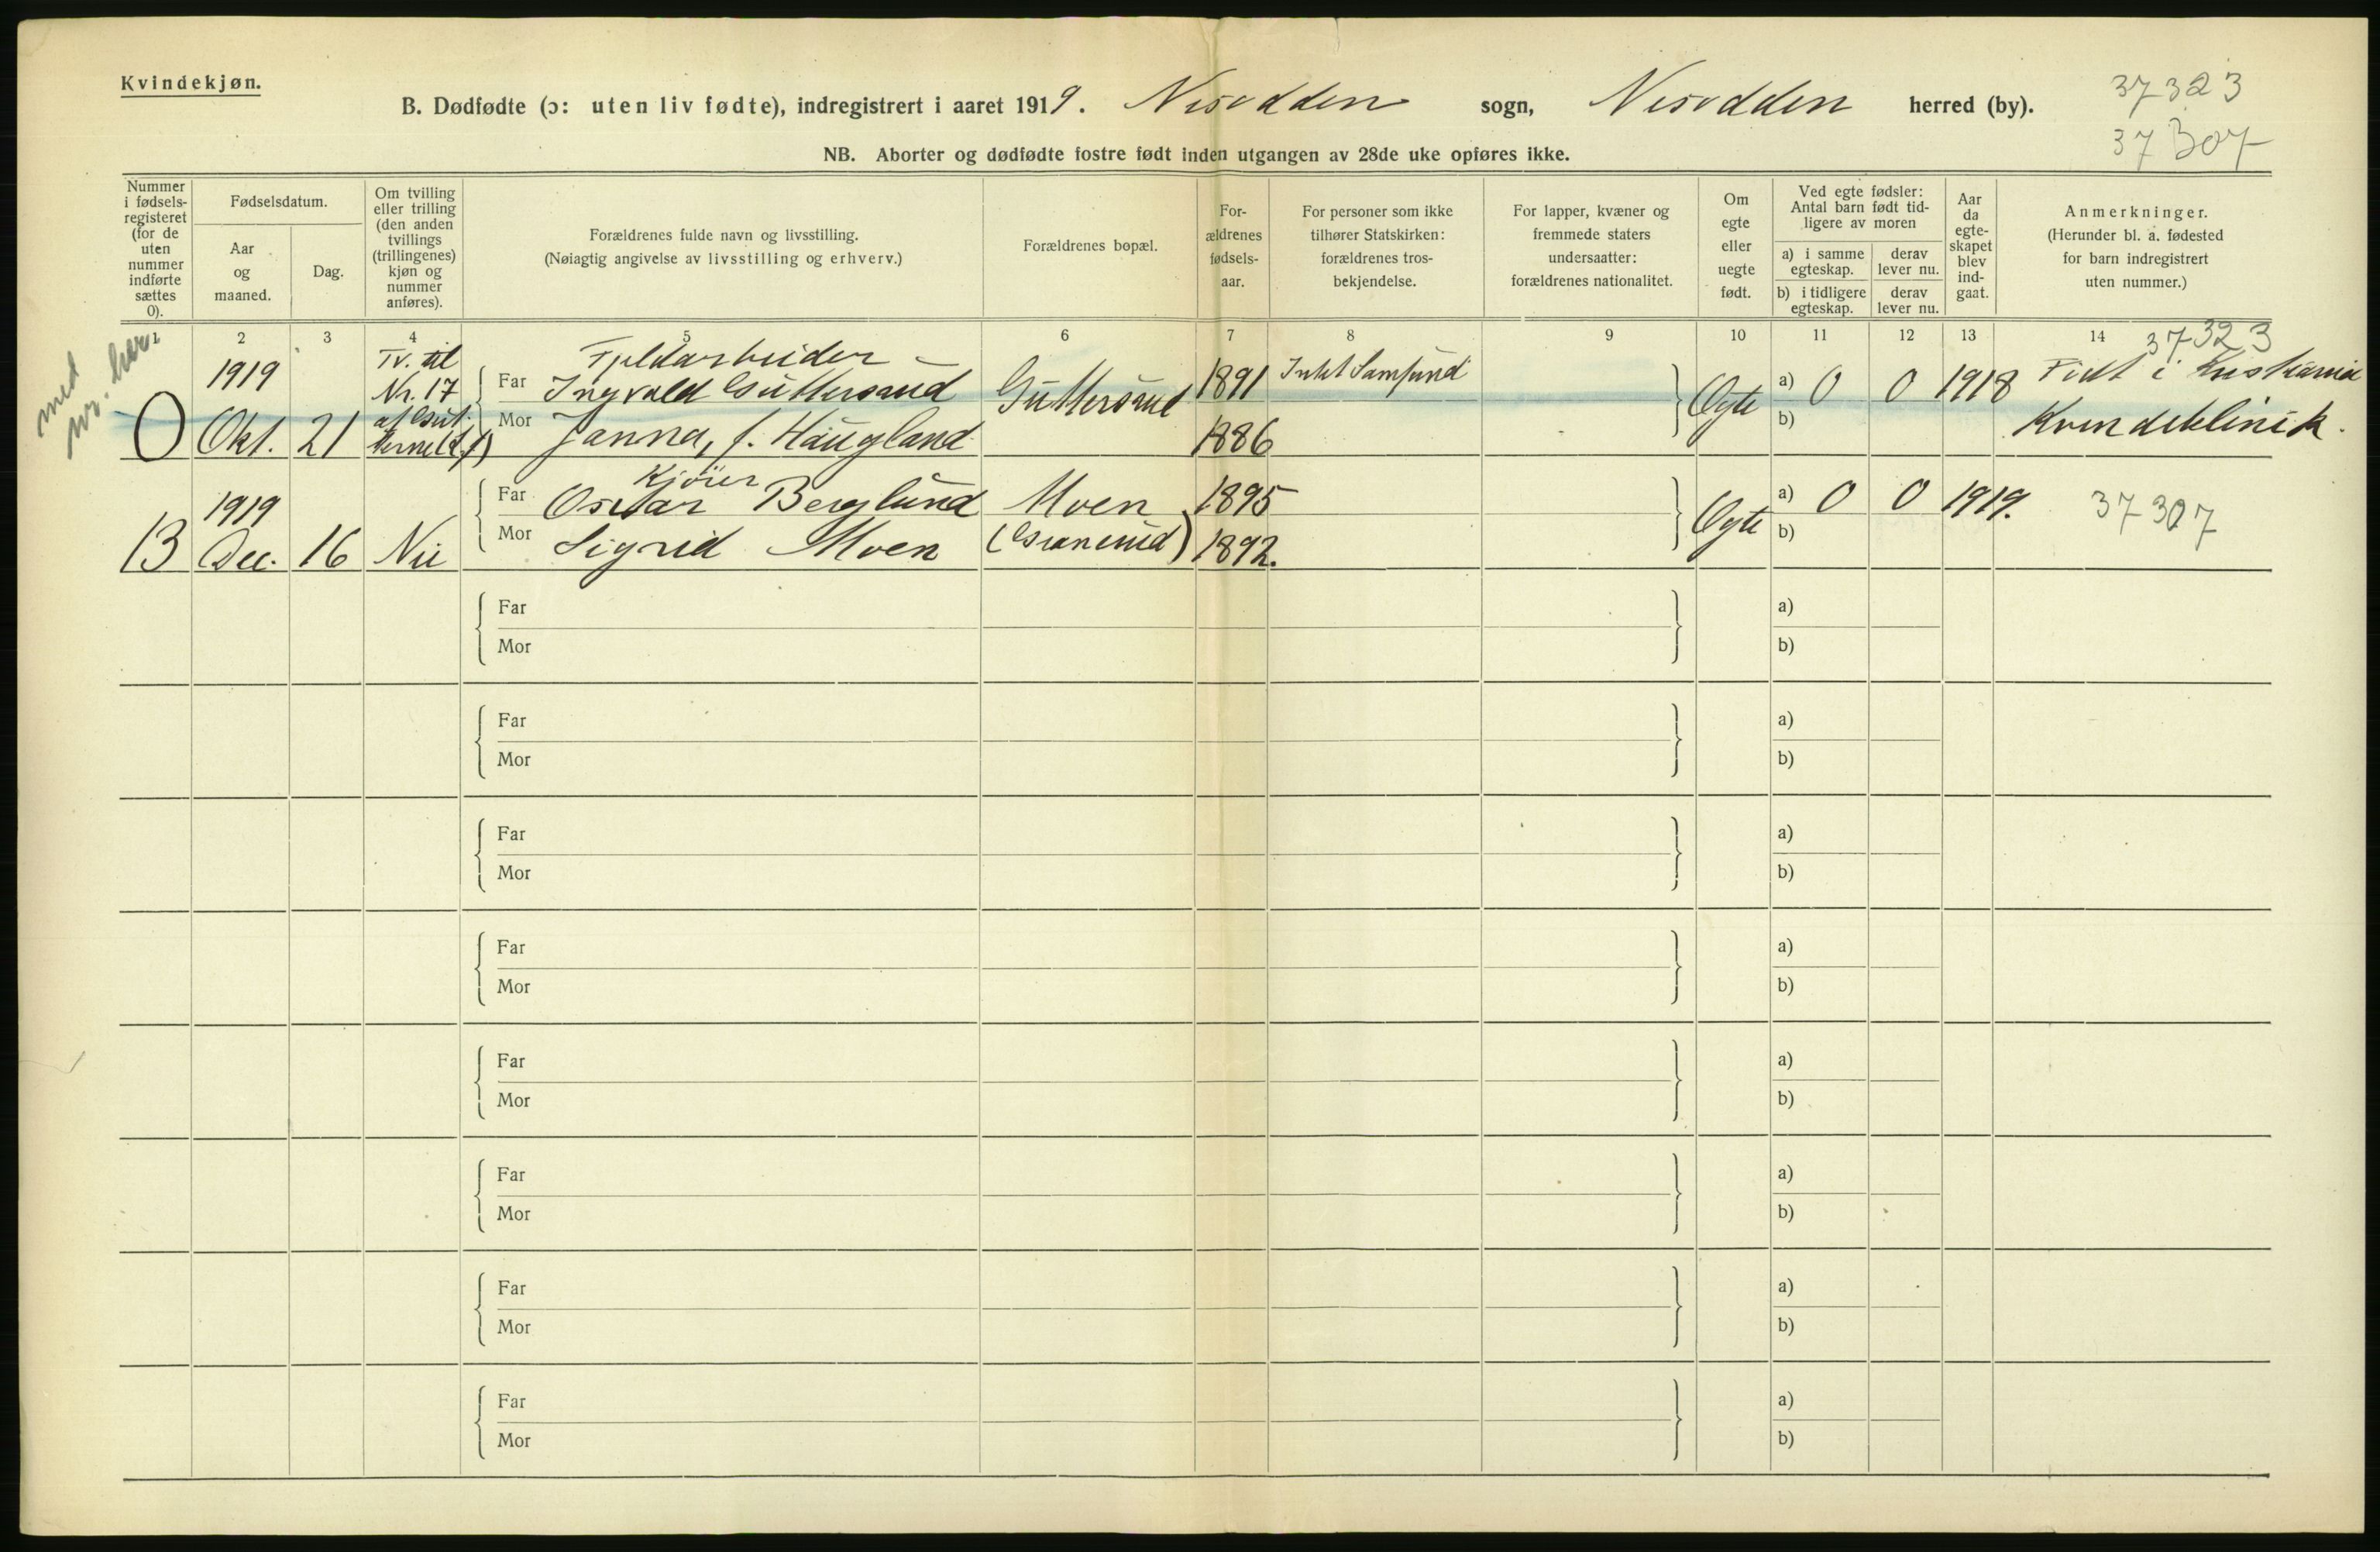 Kvindekjøn.
B. Dødfødte (ɔ: uten liv fødte), indregistrert i aaret 1919. Nesodden sogn, Nesodden herred (by).
37323
37307
NB. Aborter og dødfødte fostre født inden utgangen av 28de uke opføres ikke.
Nummer
i fødsels-
registeret
(for de
uten
nummer
indførte
sættes
0).
Fødselsdatum.
Aar
og
maaned.
Dag.
Om tvilling
eller trilling
(den anden
tvillings
(trillingenes)
kjøn og
nummer
anføres).
Forældrenes fulde navn og livsstilling.
(Nøiagtig angivelse av livsstilling og erhverv.)
Forældrenes bopæl.
For-
ældrenes
fødsels-
aar.
For personer som ikke
tilhører Statskirken:
forældrenes tros-
bekjendelse.
For lapper, kvæner og
fremmede staters
undersaatter:
forældrenes nationalitet.
Om
egte
eller
uegte
født.
Ved egte fødsler:
Antal barn født tid-
ligere av moren
a) i samme
egteskap.
derav
lever nu.
b) i tidligere
egteskap.
derav
lever nu.
Aar
da
egte-
skapet
blev
ind-
gaat.
Anmerkninger.
(Herunder bl. a. fødested
for barn indregistrert
uten nummer.)
1 2 3 4 5 6 7 8 9 10 11 12 13 14
med
nr. her
0
1919
Okt. 21
Tv. til
Nr. 17
Fjeldarbeider
Far Ingvald Guttersrud
Mor Janna, f. Haugland
Guttersrud
1891
1886
Intet Samfund
Egte
a) 0 0 1918
b)
37323
Født i Kristiania
Kvindeklinik.
13
1919
Dec. 16 Nei
Kjører
Far Oskar Berglund
Mor Sigrid Moen
Moen
(Granerud)
1895
1892.
Egte
a) 0 0 1919.
b)
37307
Far a)
Mor b)
Far a)
Mor b)
Far a)
Mor b)
Far a)
Mor b)
Far a)
Mor b)
Far a)
Mor b)
Far a)
Mor b)
Far a)
Mor b)